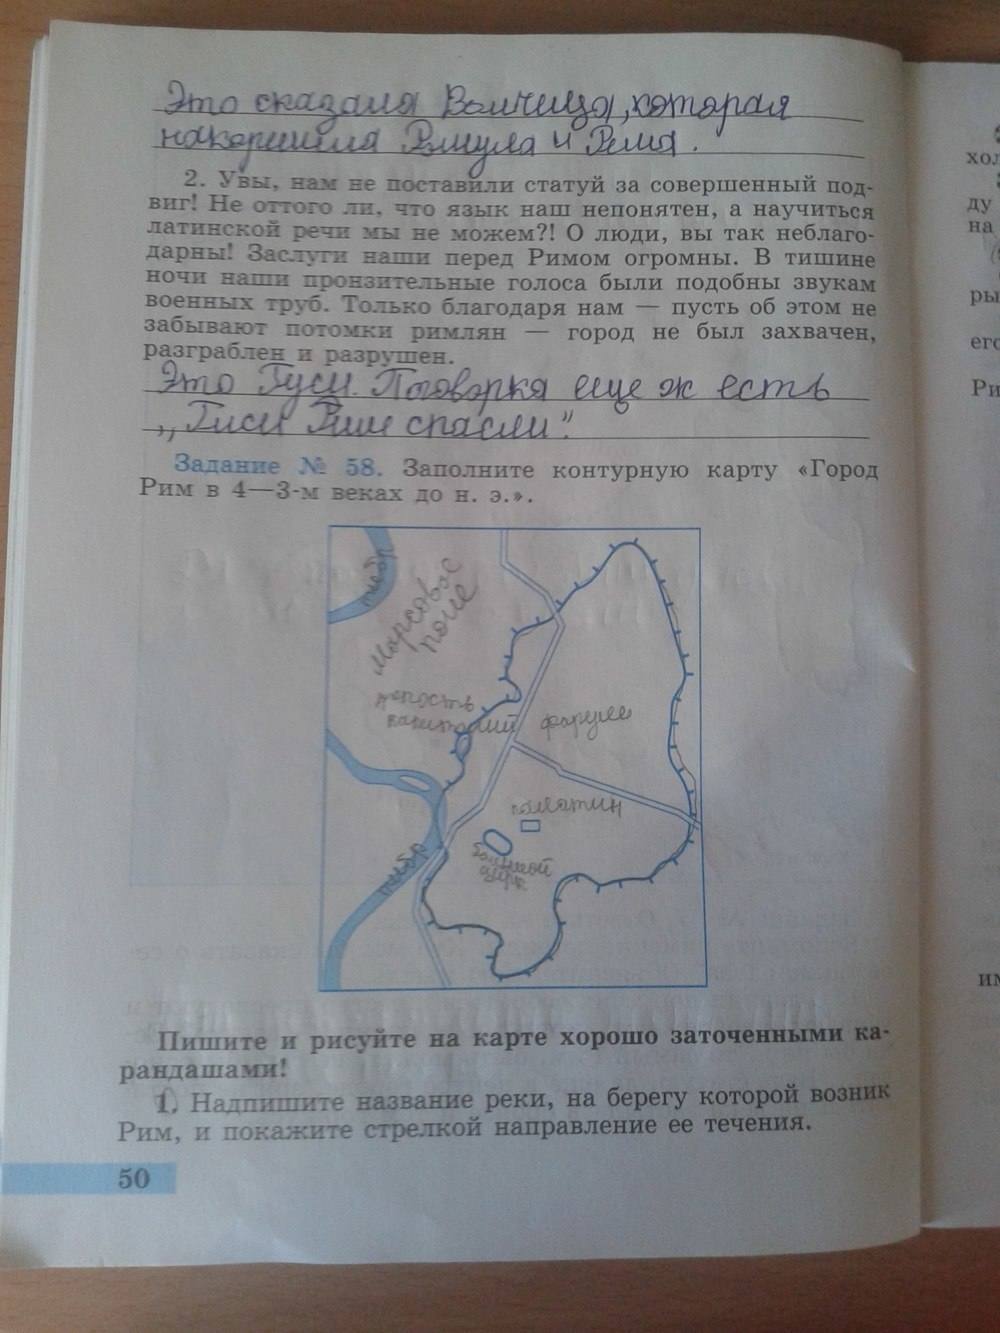 Это сказала Волчица, которая
накормила Ромула и Рема.
2. Увы, нам не поставили статуй за совершенный под-
виг! Не оттого ли, что язык наш непонятен, а научиться
латинской речи мы не можем?! О люди, вы так неблаго-
дарны! Заслуги наши перед Римом огромны. В тишине
ночи наши пронзительные голоса были подобны звукам
военных труб. Только благодаря нам — пусть об этом не
забывают потомки римлян — город не был захвачен,
разграблен и разрушен.
Это Гуси. Поговорка еще ж есть
„Гуси Рим спасли".
Задание № 58. Заполните контурную карту «Город
Рим в 4—3-м веках до н. э.».
тибр
марсовое
поле
крепость
капитолий
форум
палатин
большой
цирк
тибр
Пишите и рисуйте на карте хорошо заточенными ка-
рандашами!
1. Надпишите название реки, на берегу которой возник
Рим, и покажите стрелкой направление ее течения.
50
хол
ду
на
ры
его
Ри
им